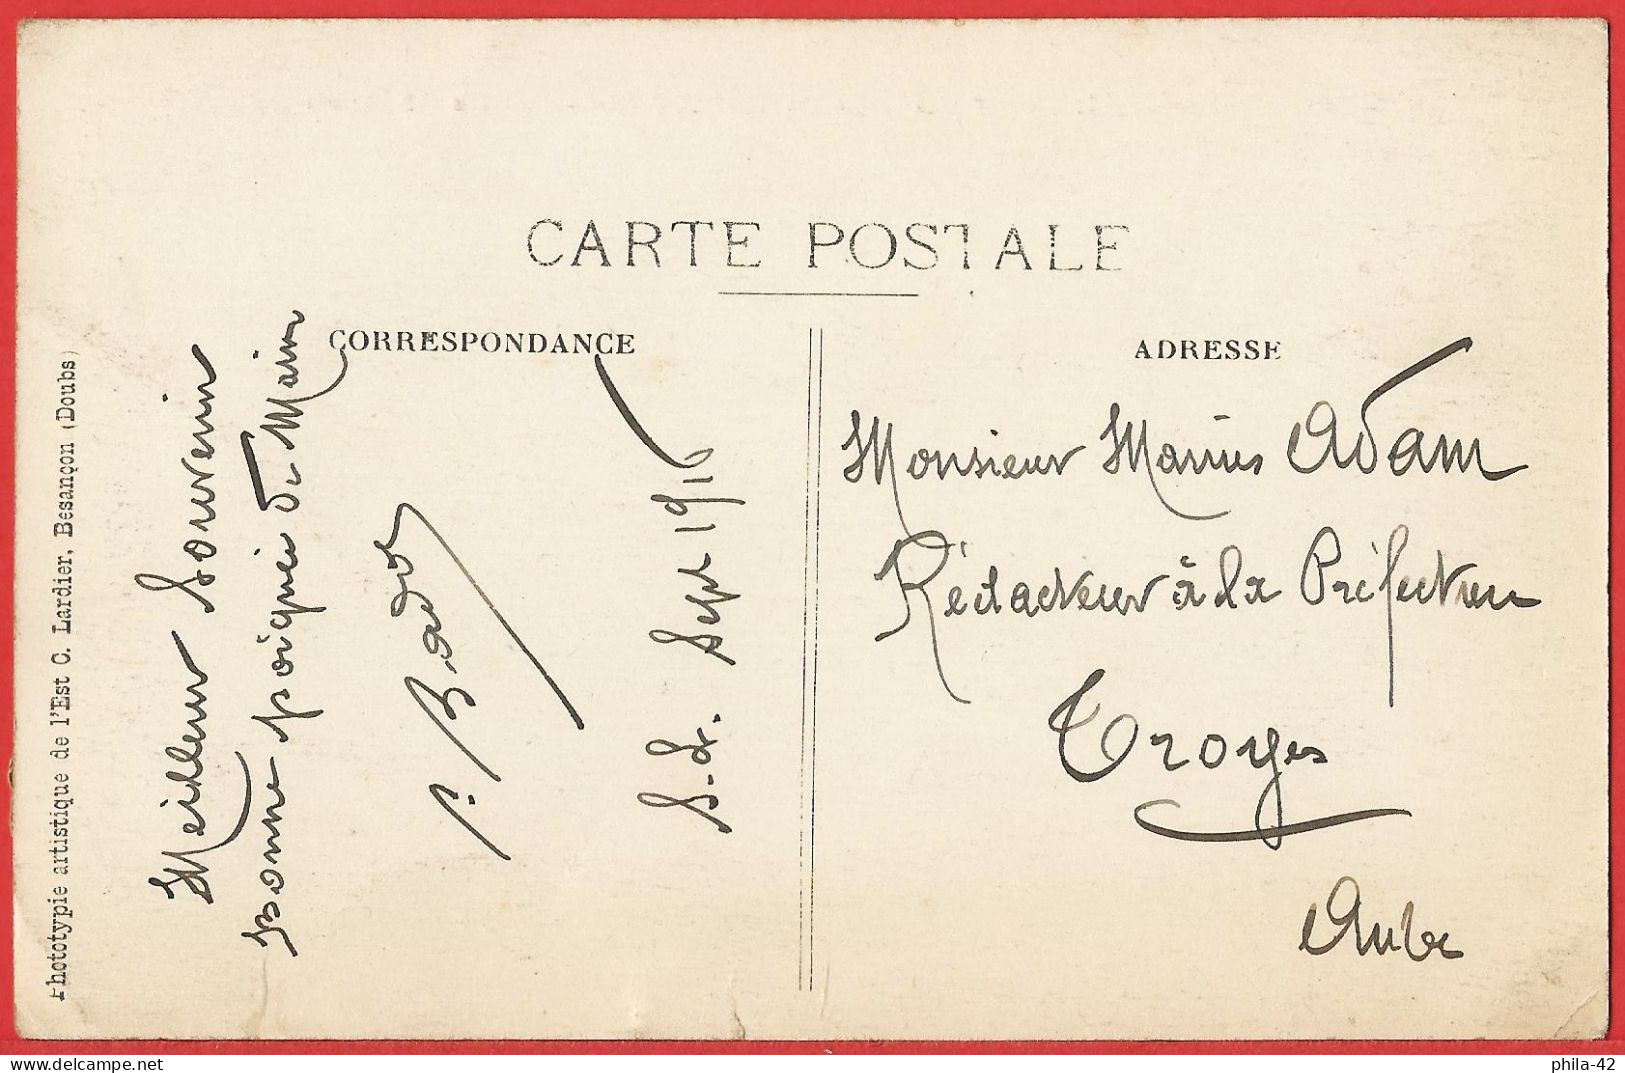 CARTE POSTALE
CORRESPONDANCE
ADRESSE
Phototypie artistique de l'Est C. Lardier, Besançon (Doubs)
Meilleur Souvenir
bonne poignée de Main
Sept 1916
Monsieur Marius Adam
Rédacteur à la Préfecture
Troyes
Aube
www.delcampe.net
phila-42